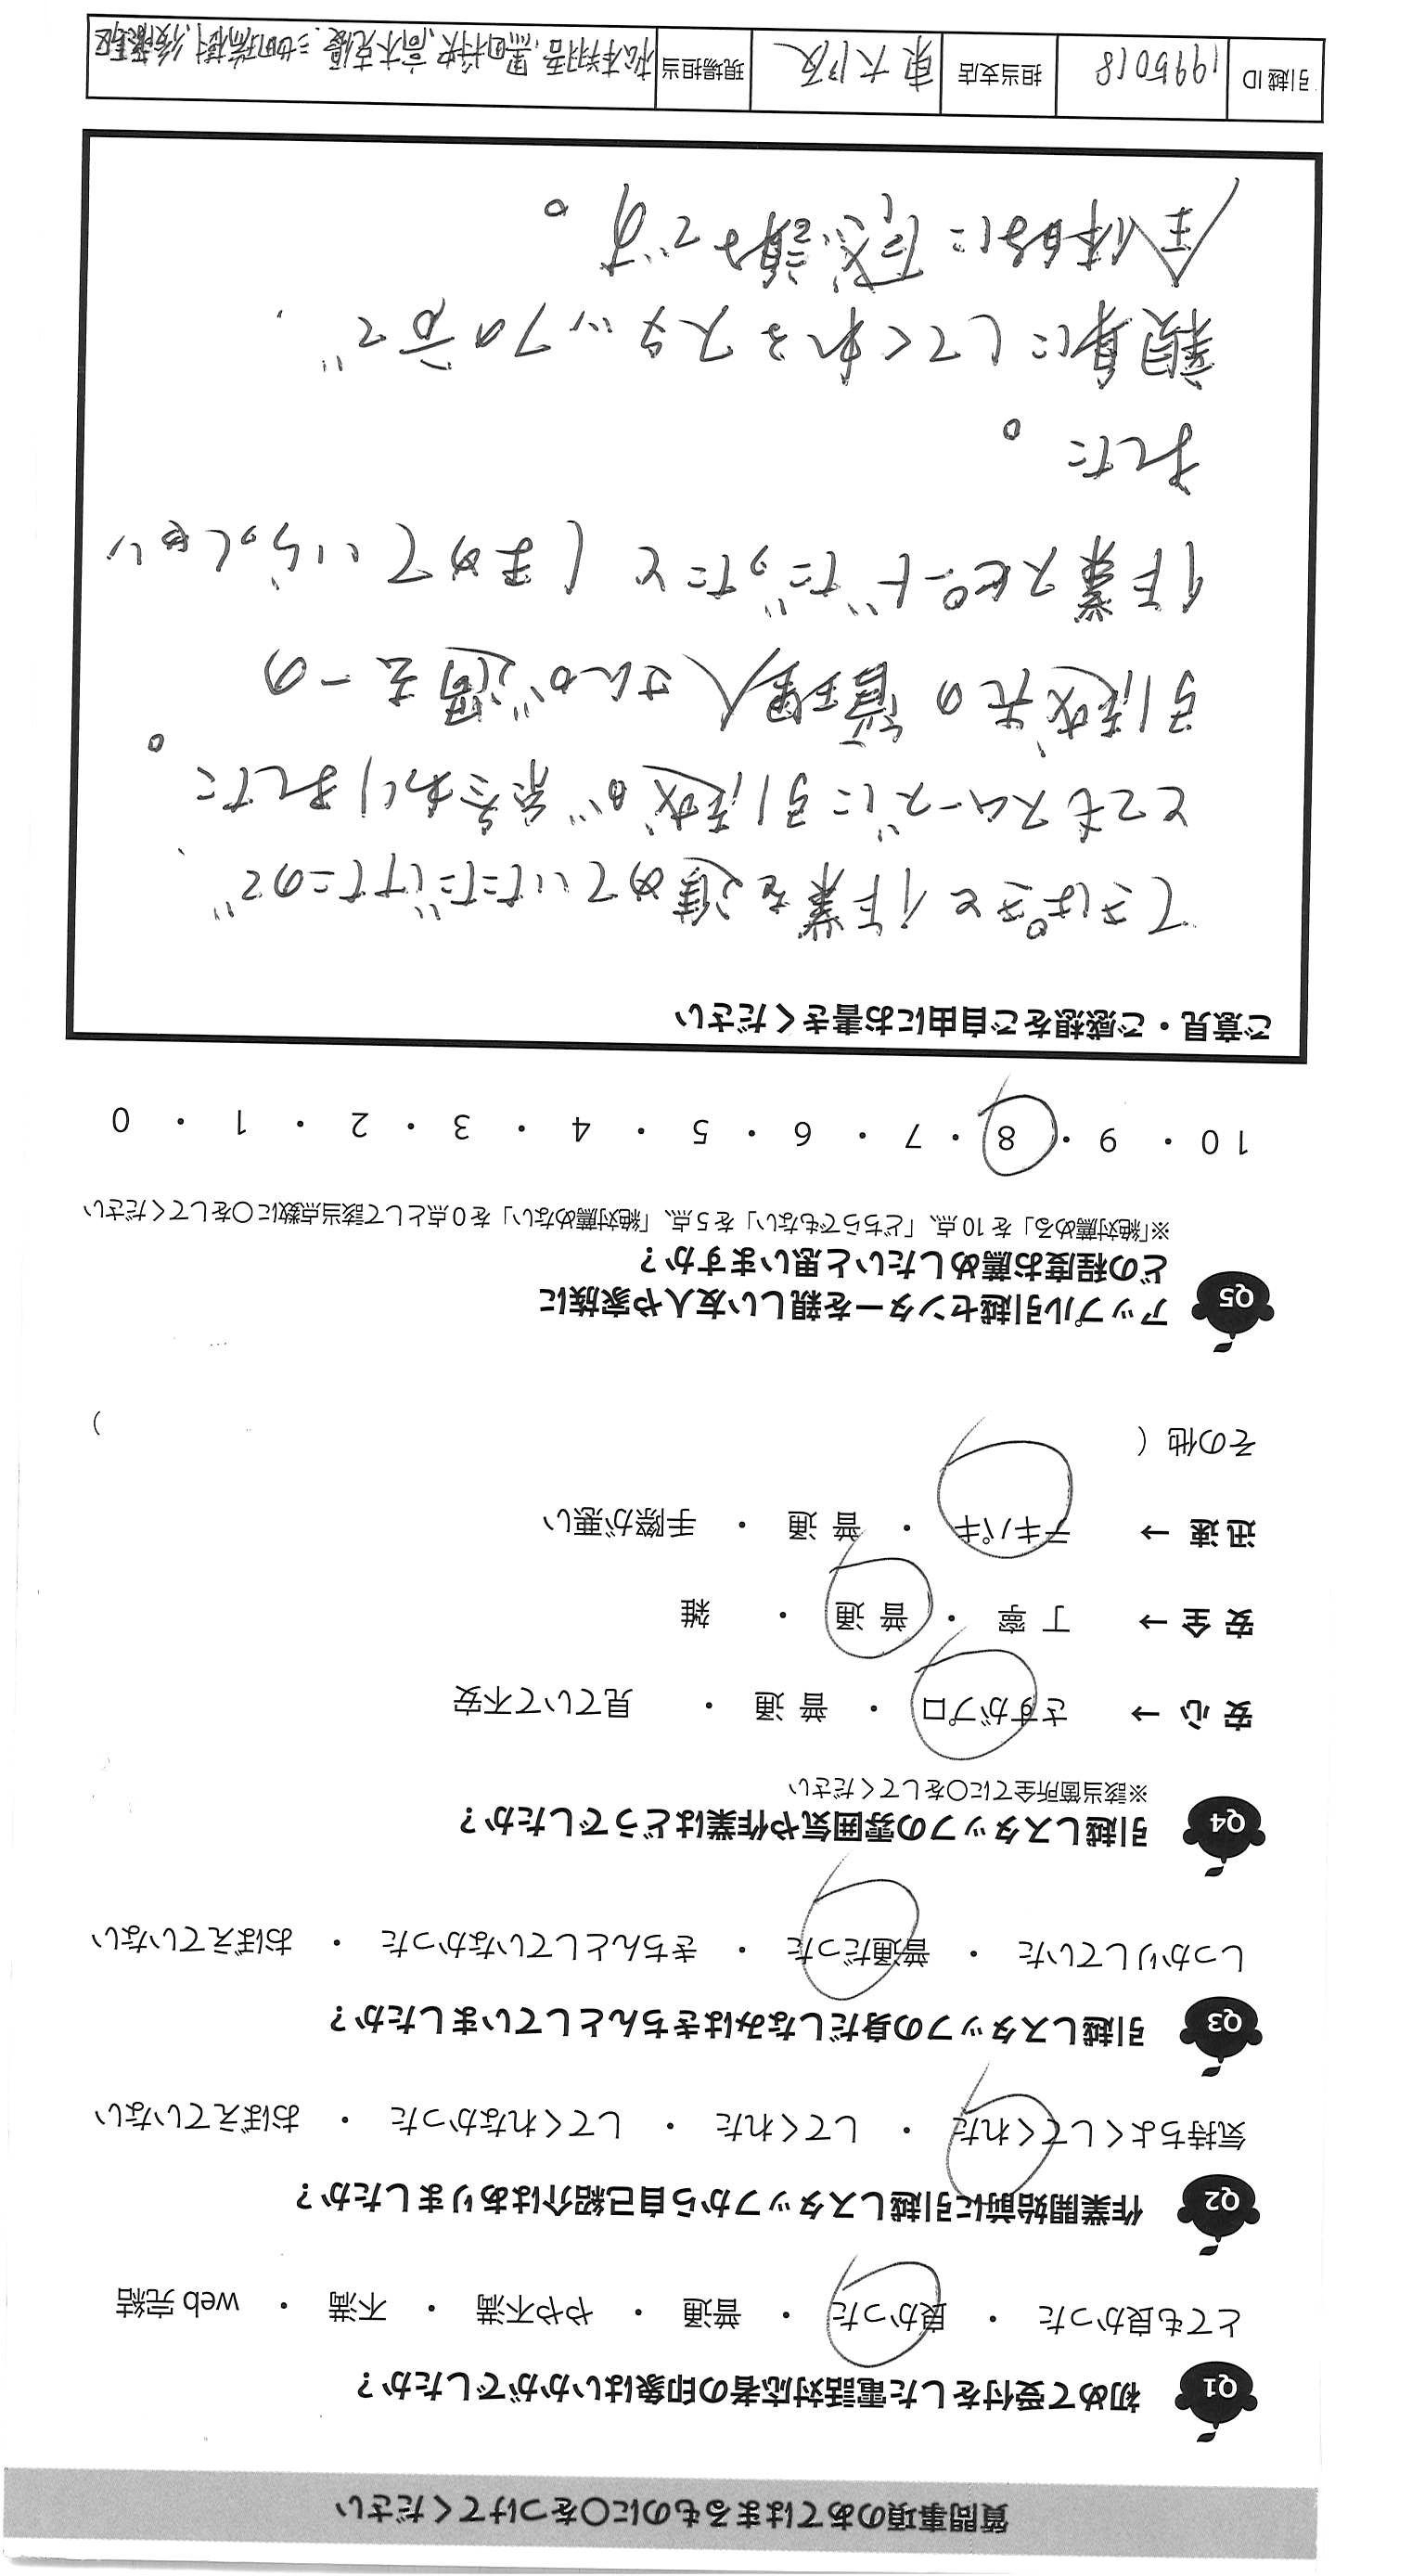 質問事項のあてはまるものに〇をつけてください
Q1 初めて受付をした電話対応者の印象はいかがでしたか？
とても良かった ・ 良かった ・ 普通 ・ やや不満 ・ 不満 ・ web完結
Q2 作業開始前に引越しスタッフから自己紹介はありましたか？
気持ちよくしてくれた ・ してくれた ・ してくれなかった ・ おぼえていない
Q3 引越しスタッフの身だしなみはきちんとしていましたか？
しっかりしていた ・ 普通だった ・ きちんとしていなかった ・ おぼえていない
Q4 引越しスタッフの雰囲気や作業はどうでしたか？
※該当箇所全てに〇をしてください
安心 → さすがプロ ・ 普通 ・ 見ていて不安
安全 → 丁寧 ・ 普通 ・ 雑
迅速 → テキパキ ・ 普通 ・ 手際が悪い
その他（ ）
Q5 アップル引越センターを親しい友人や家族に
どの程度お薦めしたいと思いますか？
※「絶対薦める」を10点、「どちらでもない」を5点、「絶対薦めない」を0点として該当点数に〇をしてください
10 ・ 9 ・ 8 ・ 7 ・ 6 ・ 5 ・ 4 ・ 3 ・ 2 ・ 1 ・ 0
ご意見・ご感想をご自由にお書きください
てきぱきと作業を進めていただけたので、
とてもスムーズに引越が終わりました。
引越先の管理人さんが過去一の
作業スピードだったとほめていらっしゃい
ました。
親身にしてくれるスタッフの方で、
全体的に感謝です。
引越ID 1995018 担当支店 東大阪 現場担当 松本翔吾、黒田